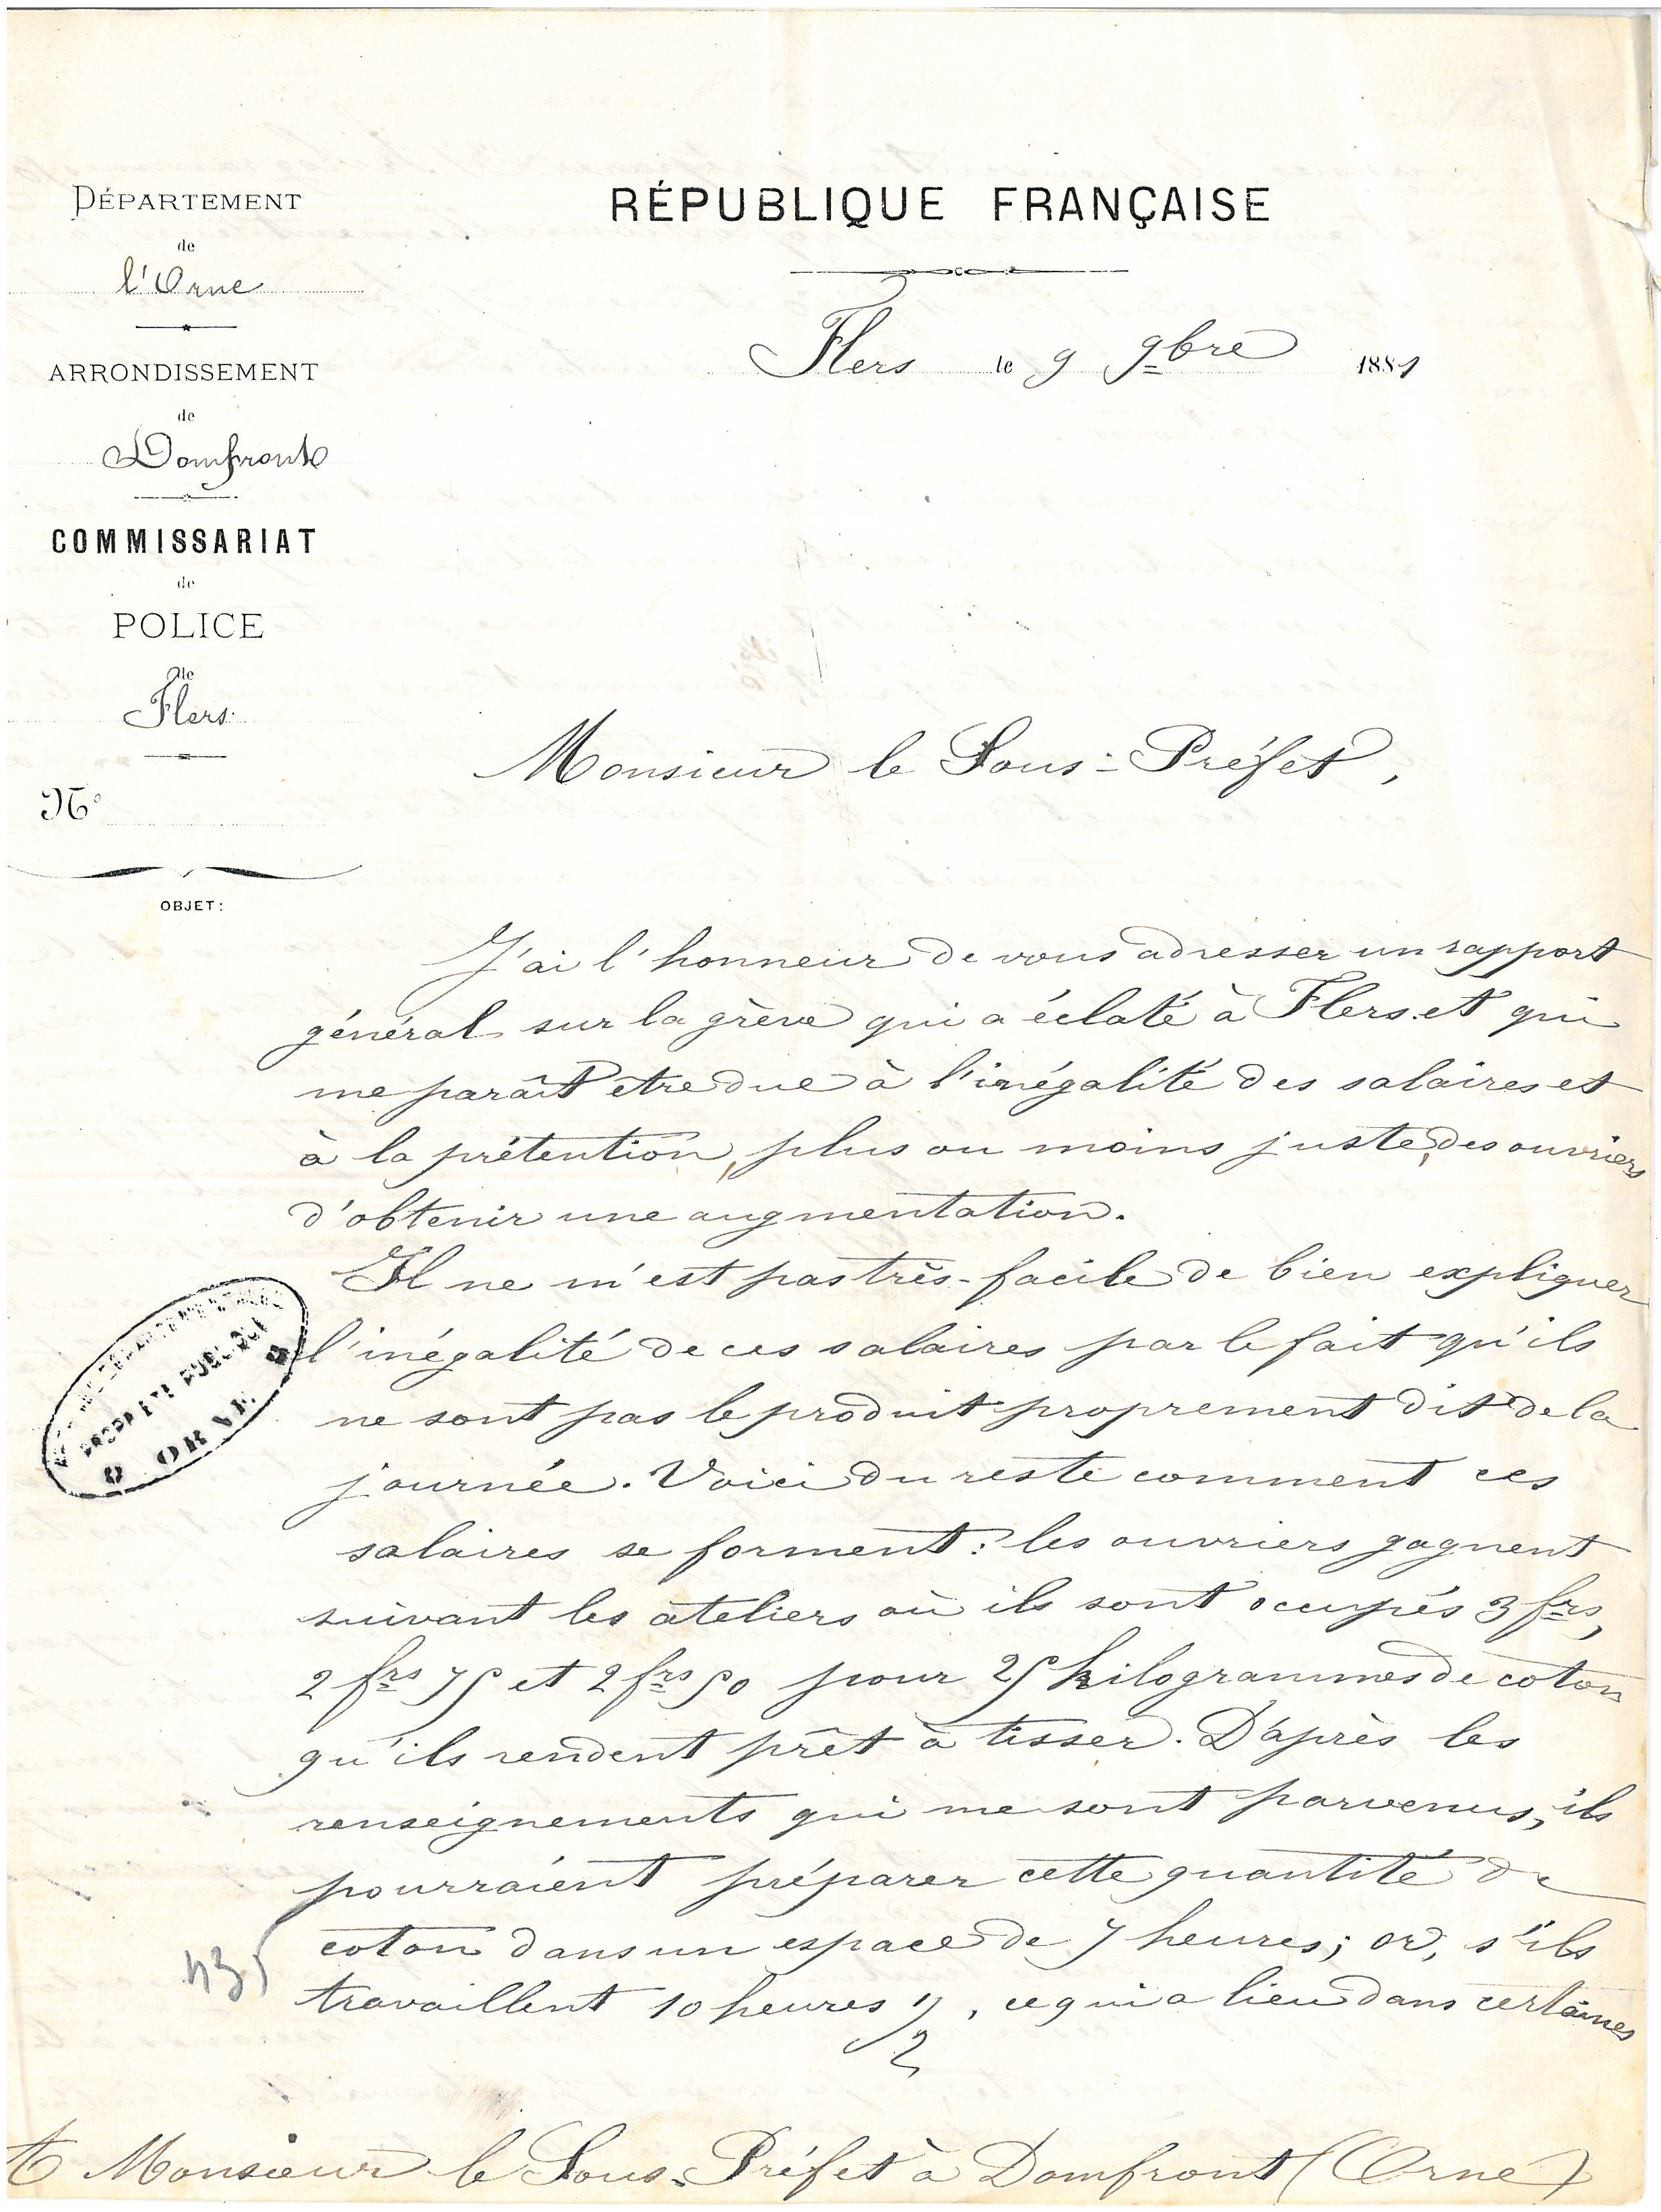 DÉPARTEMENT
de
l'Orne
ARRONDISSEMENT
de
Domfront
COMMISSARIAT
de
POLICE
de
Flers
N°
OBJET:
RÉPUBLIQUE FRANÇAISE
Flers le 9 9bre 1881
Monsieur le Sous-Préfet,
J'ai l'honneur de vous adresser un rapport
général sur la grève qui a éclaté à Flers et qui
me paraît être due à l'inégalité des salaires et
à la prétention, plus ou moins juste, des ouvriers
d'obtenir une augmentation.
Il ne m'est pas très-facile de bien expliquer
l'inégalité de ces salaires par le fait qu'ils
ne sont pas le produit proprement dit de la
journée. Voici du reste comment ces
salaires se forment: les ouvriers gagnent
suivant les ateliers où ils sont occupés 3 frs,
2 frs 75 et 2 frs 50 pour 25 kilogrammes de coton
qu'ils rendent prêt à tisser. D'après les
renseignements qui me sont parvenus, ils
pourraient préparer cette quantité de
coton dans un espace de 7 heures; or, s'ils
travaillent 10 heures 1/2, ce qui a lieu dans certaines
PROPRIÉTÉ PUBLIQUE
ORNE
435
A Monsieur le Sous-Préfet à Domfront (Orne)